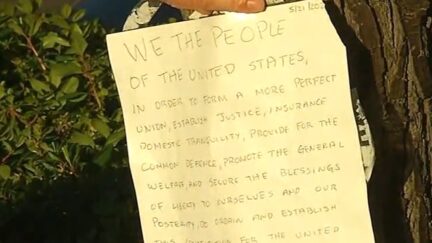 5/21/202
WE THE PEOPLE
OF THE UNITED STATES,
IN ORDER TO FORM A MORE PERFECT
UNION, ESTABLISH JUSTICE, INSURANCE
DOMESTIC TRANQUILITY, PROVIDE FOR THE
COMMON DEFENCE, PROMOTE THE GENERAL
WELFARE, AND SECURE THE BLESSINGS
OF LIBERTY TO OURSELVES AND OUR
POSTERITY, DO ORDAIN AND ESTABLISH
THIS FOR THE UNITED